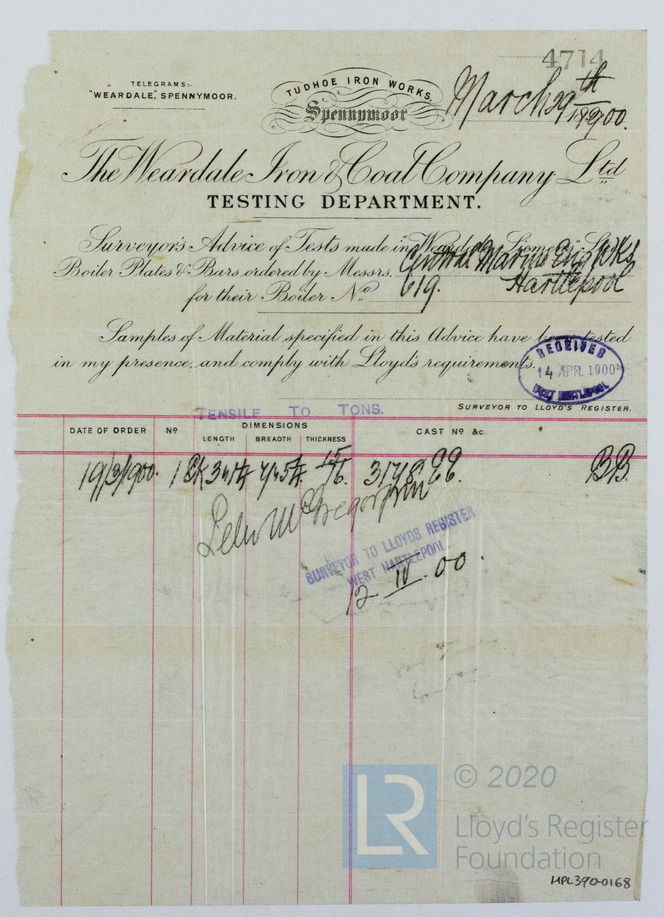 4714
TELEGRAMS:-
"WEARDALE," SPENNYMOOR.
TUDHOE IRON WORKS,
Spennymoor
March 29th 1900.
The Weardale Iron & Coal Company Ltd
TESTING DEPARTMENT.
Surveyor's Advice of Tests made in
Boiler Plates & Bars ordered by Messrs. Central Marine Eng Wks
for their Boiler No. 619. Hartlepool
Samples of Material specified in this Advice have been tested
in my presence, and comply with Lloyd's requirements.
RECEIVED
14 APR. 1900
WEST HARTLEPOOL
SURVEYOR TO LLOYD'S REGISTER.
TENSILE TO TONS.
DATE OF ORDER No DIMENSIONS CAST No &c.
LENGTH BREADTH THICKNESS
19/3/1900. 15/16 BB
SURVEYOR TO LLOYDS REGISTER
WEST HARTLEPOOL.
12 IV. 00.
© 2020
LR
Lloyd's Register
Foundation
HPL390-0168